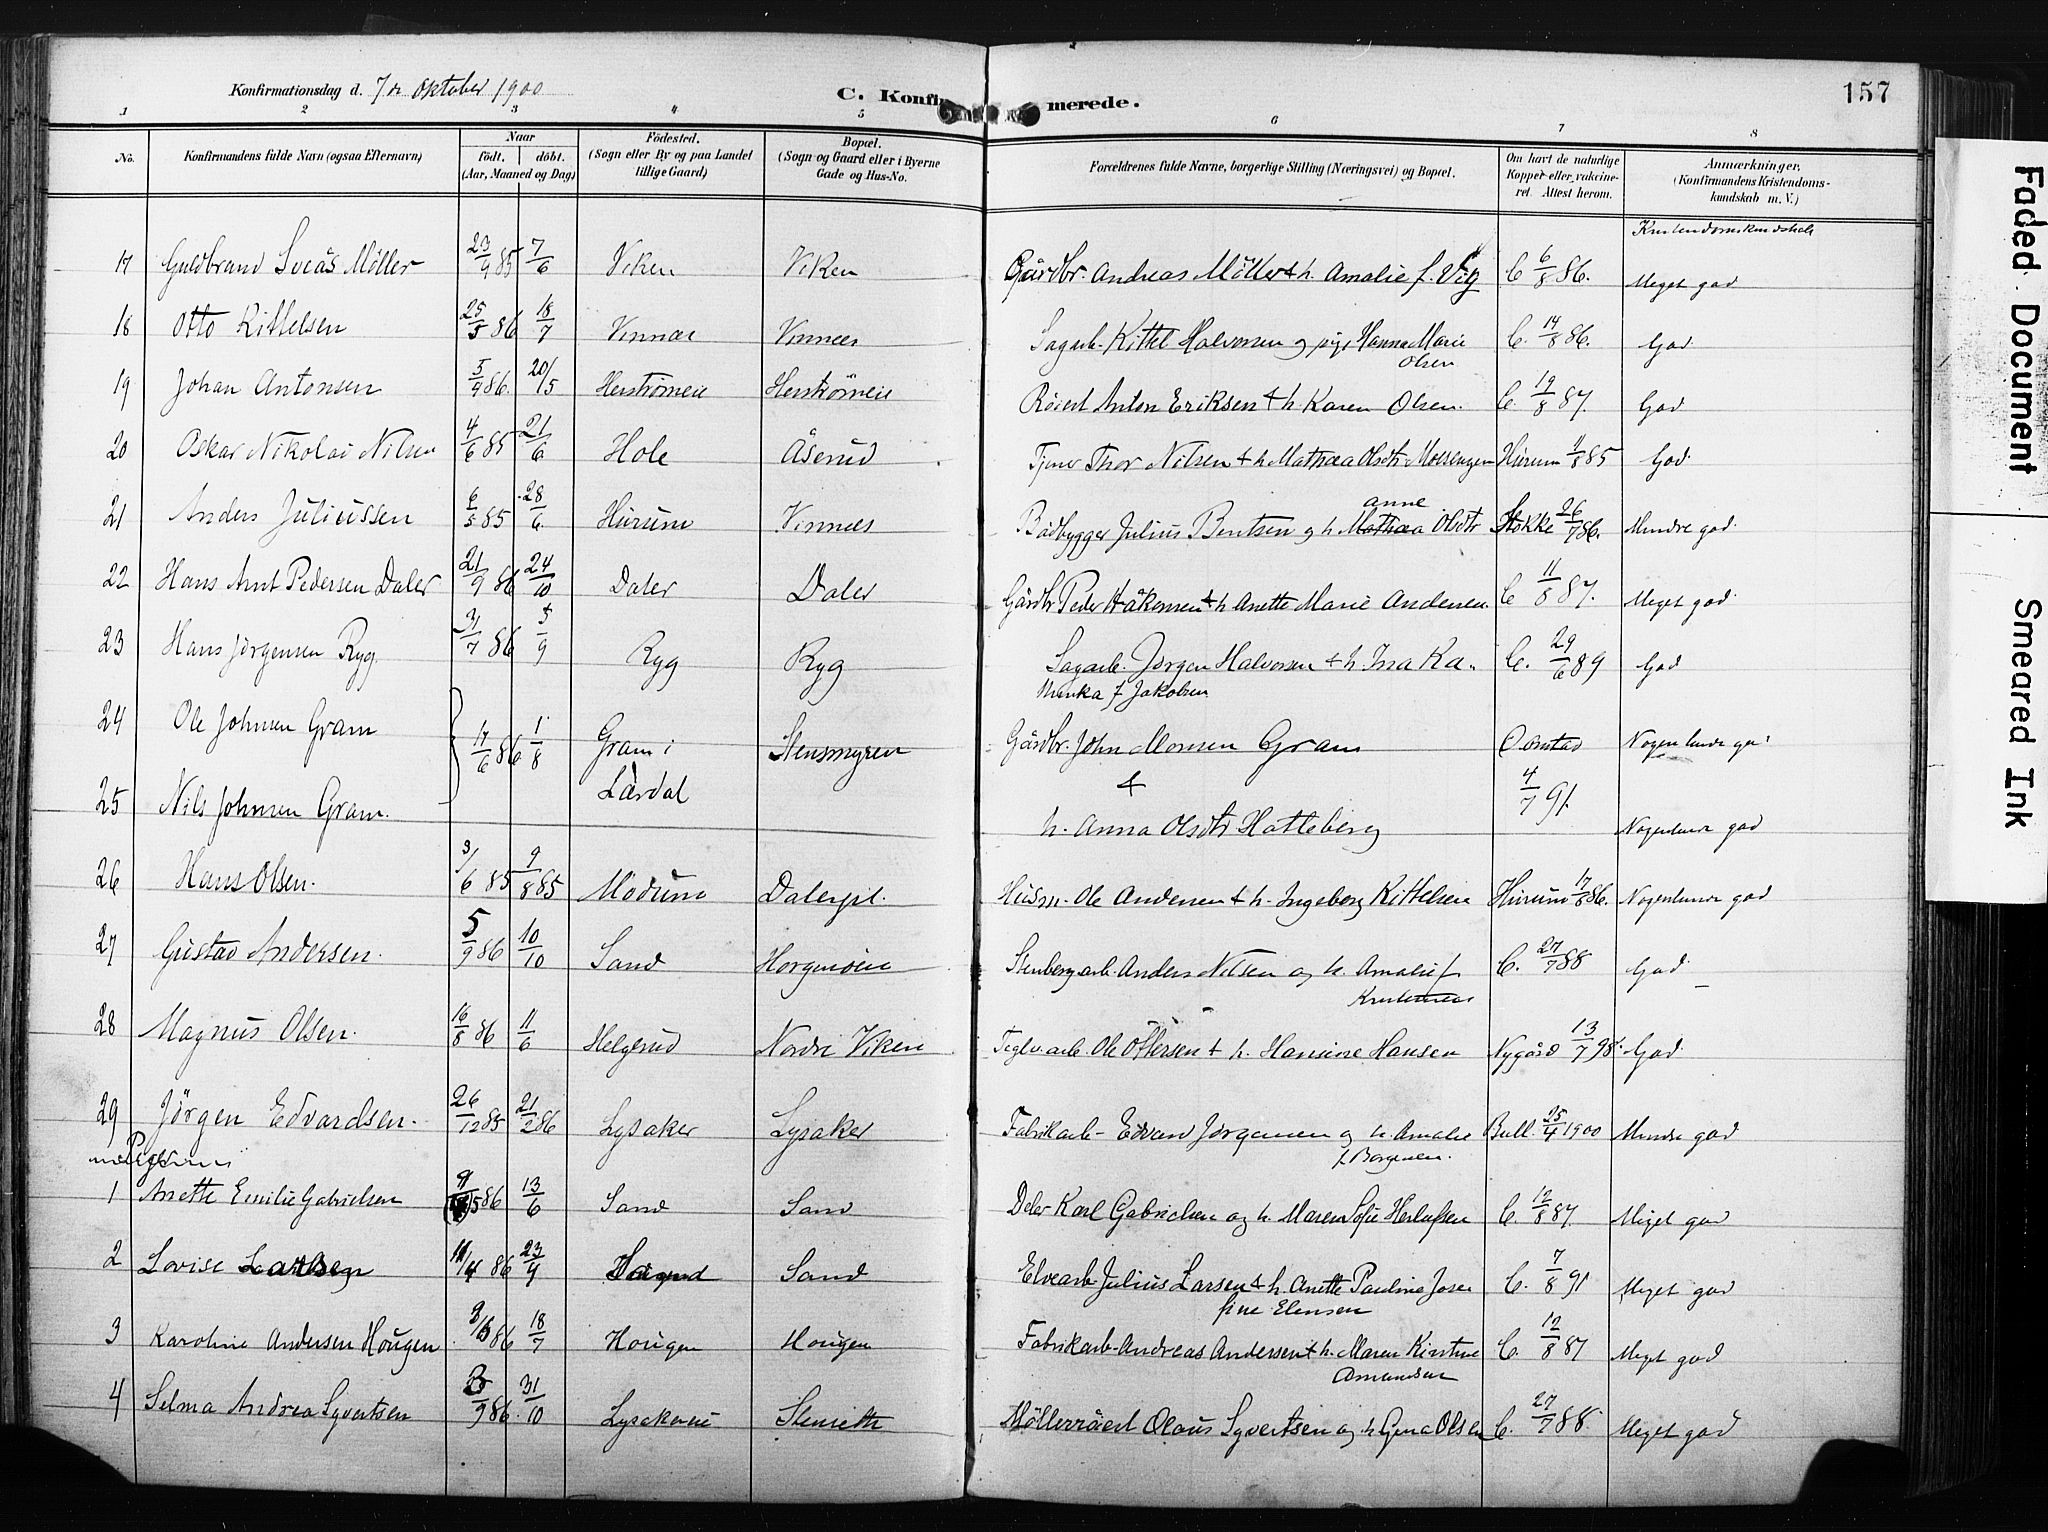 Konfirmationsdag d. 7de Oktober 1900
C. Konfirmerede.
157
1 2 3 4 5 6 7 8
No. Konfirmandens fulde Navn (ogsaa Efternavn) Naar födt. döbt. (Aar, Maaned og Dag) Födested. (Sogn eller By og paa Landet tillige Gaard) Bopæl. (Sogn og Gaard eller i Byerne Gade og Hus-No. Forældrenes fulde Navne, borgerlige Stilling (Næringsvei) og Bopæl. Om havt de naturlige Kopper eller vakcineret. Attest herom. Anmærkninger, (Konfirmandens Kristendomskundskab m. V.)
Kristendomskundskab
17 Guldbrand Sveås Möller 23/4 85 7/6 Viken Viken Gårdbr. Andreas Möller & h. Amalie f. Vig C 6/8 86. Meget god
18 Otto Kittelsen 25/5 86 18/7 Vinnæs Vinnees Sagarb. Kittel Halvorsen og pige Hanna Marie Olsen C. 14/8 86. God
19 Johan Antonsen 5/9 86. 20/5 Herstrømeie Herstrømeie Röiert Anton Eriksen & h. Karen Olsen. C. 19/8 87. God
20 Oskar Nikolai Nilsen 4/6 85 21/6 Hole Åserud Tjener Thor Nilsen & h. Mathea Olsdtr Moesengen Hurum 1/8 85 God
21 Anders Juliussen 6/5 85 28/6 Hurum Vinnees Bådbygger Julius Bentsen og h. anne Olsdtr Stokke 26/7 86. Mindre god
22 Hans Arnt Pedersen Daler 21/9 86 24/10 Daler Daler Gårdbr Peder Håkonsen & h. Anette Marie Andersen C 11/8 87. Meget god
23 Hans Jörgensen Ryg 31/7 86 5/9 Ryg Ryg Sagarb. Jörgen Halvorsen & h. Ina Ka. C. 29/6 89 God
f Jakobsen
24 Ole Johnsen Gram 17/6 86 1/8 Gram i Lærdal Stensmyren Gårdbr. John Monsen Gram Nogenlunde god
&
25 Nils Johnsen Gram. 4/7 91. h. Anna Olsdtr Hatleberg Nogenlunde god
26 Hans Olsen. 3/6 85 9/8 85 Modum Dalerpl. Husm. Ole Andersen & h. Ingeborg Kittelsen Hurum 17/8 86. Nogenlunde god
27 Gustav Andersen. 5/9 86 10/10 Sand Horgenöie Stenbergarb. Anders Nilsen og h. Amalie f Kristensen C. 27/7 88 God
28 Magnus Olsen. 16/8 86 11/6 Helgerud Nordre Viken Teglv.arb. Ole Ottersen & h. Hansine Hansen Nygård 13/7 98. God
29 Jörgen Edvardsen. 26/12 85 21/2 86 Lysaker Lysaker Fabrikarb. Edvard Jörgensen og h. Amalie f. Borgersen. Bull. 25/4 1900 Mindre god
Pigerne
1 Anette Emilie Gabrielsen 5 86 13/6 Sand Sand Deler Karl Gabrielsen og h. Maren Sofie Herlufsen C. 12/8 87. Meget god
2 Lovise Larsen 11/4 86 23/4 Sand Elvearb Julius Larsen & h. Anette Pauline Josefine Elensen C. 7/8 91 Meget god
3 Karoline Andersen Hougen 86 18/7 Hougen Hougen Fabrikarb. Andreas Andersen & h. Maren Kirstine Amundsen C. 12/8 87 Meget god
4 Selma Andrea Syvertsen 9 86. 31/10 Lysakereie Stenseth Möllerröiert Olaus Syvertsen og h. Gina Olsen C. 27/7 88. Meget god
Faded Document
Smeared Ink